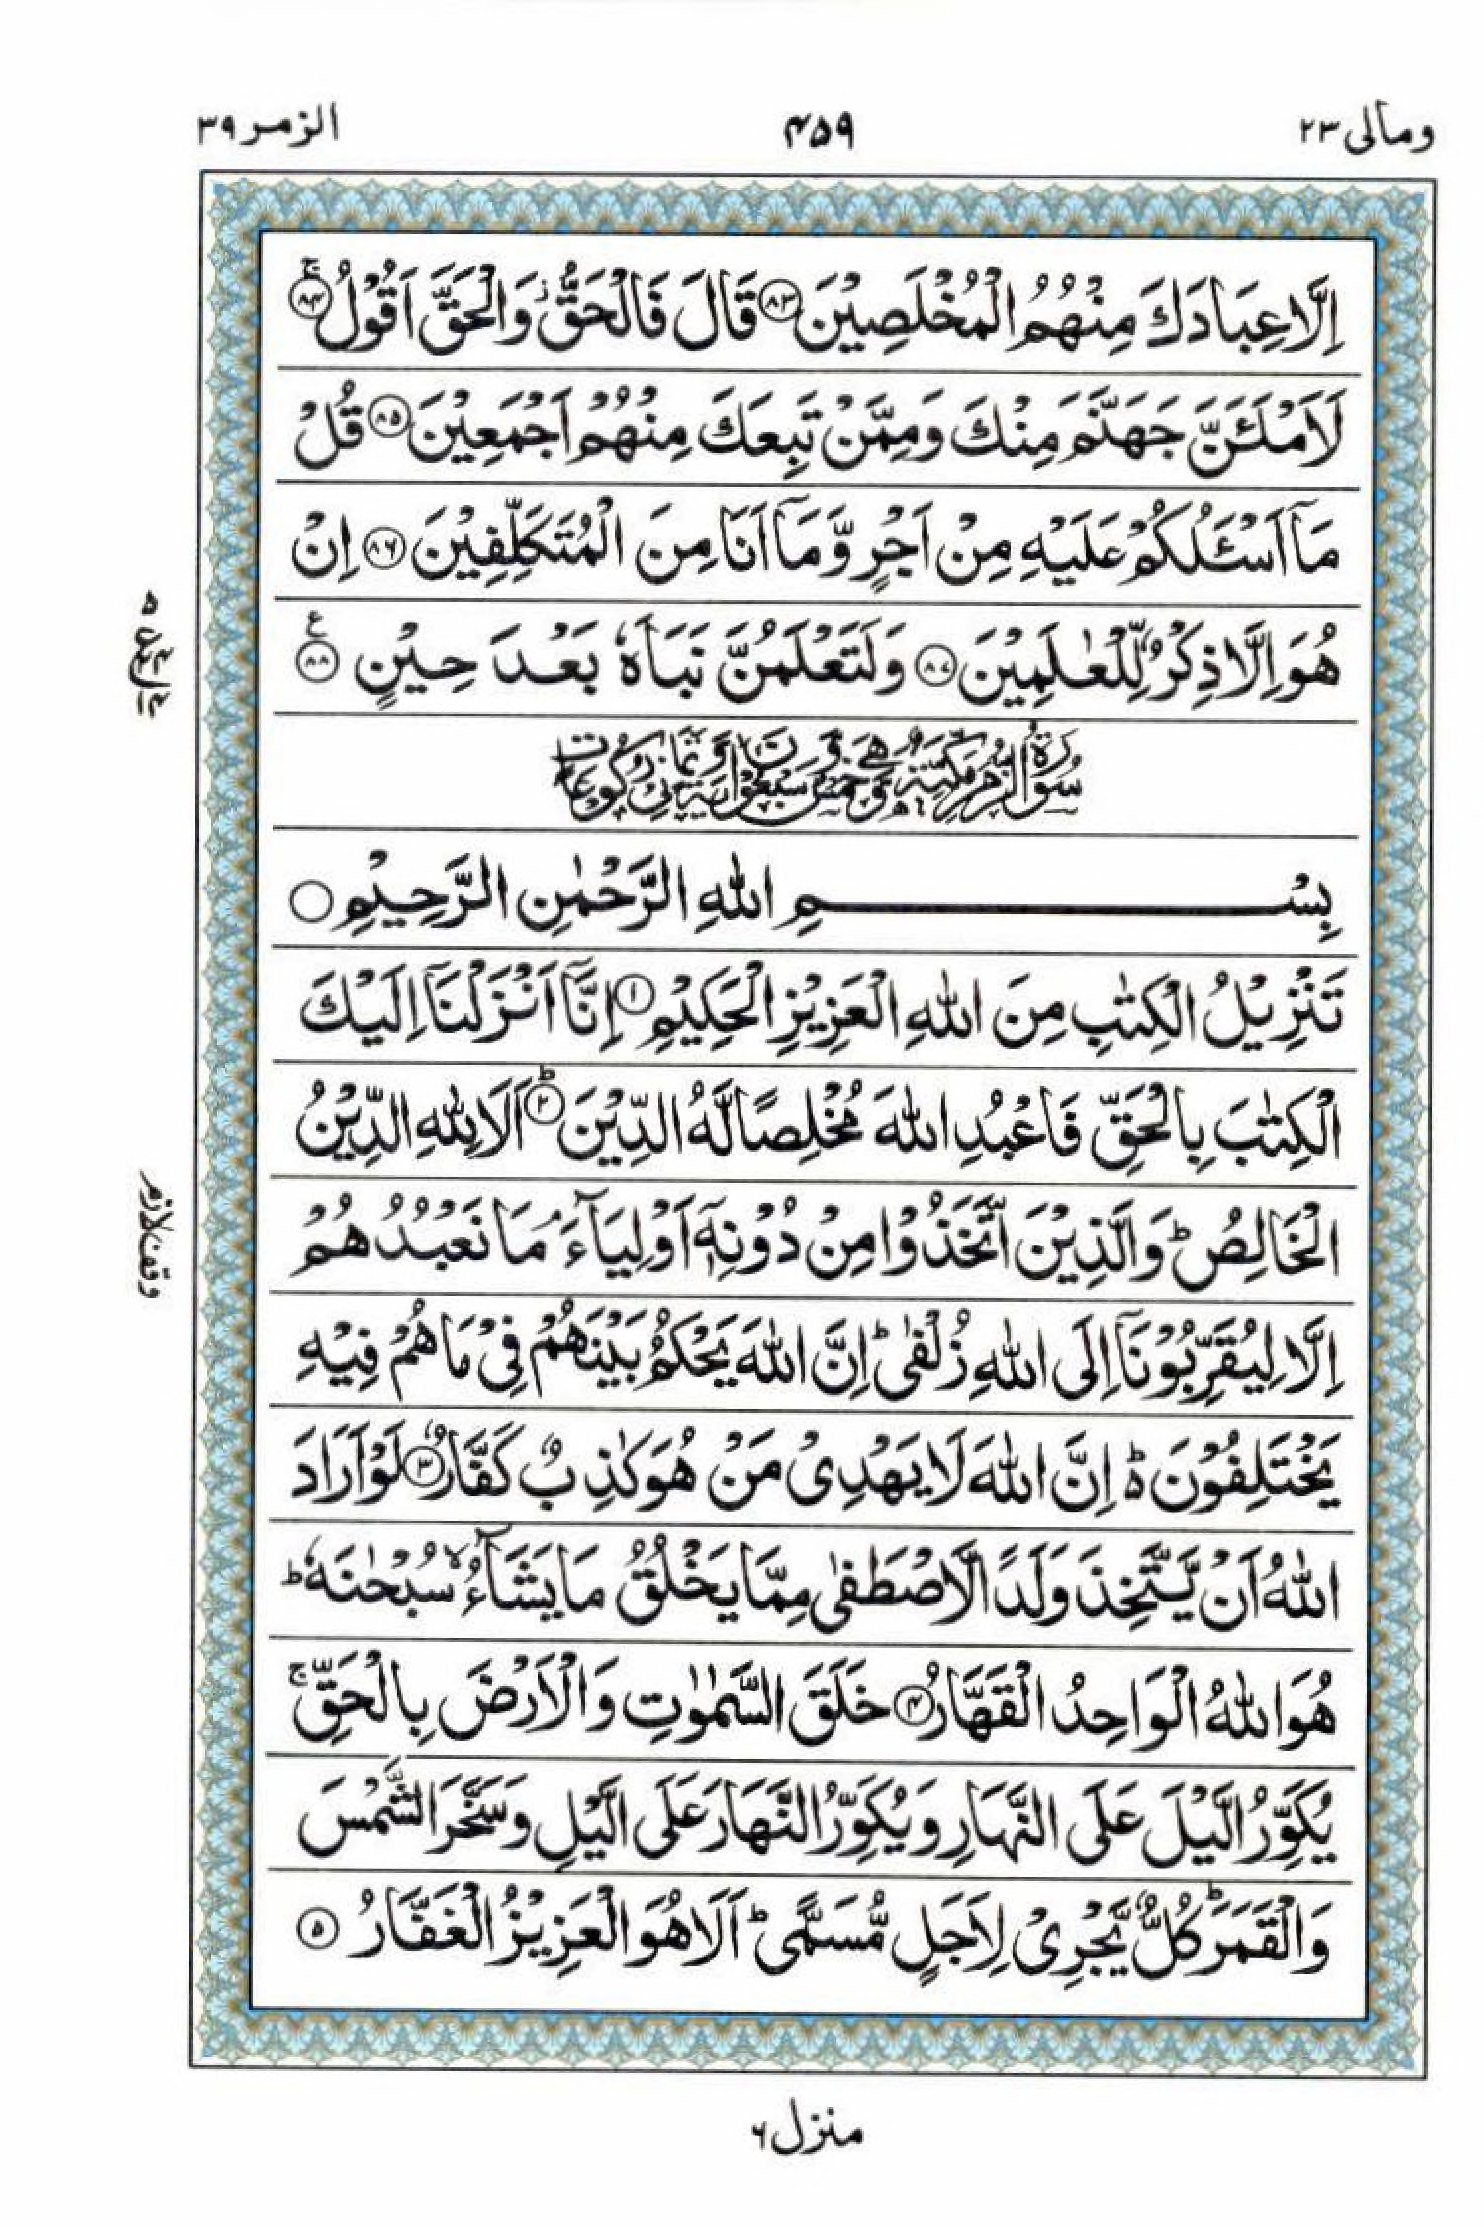 ومالی ۲۳
۴۵۹
الزمر ۳۹
اِلَّا عِبَادَكَ مِنْهُمُ الْمُخْلَصِيْنَ ﴿۸۳﴾ قَالَ فَالْحَقُّ ۫ وَالْحَقَّ اَقُوْلُ ۚ ﴿۸۴﴾
لَاَمْلَـَٔنَّ جَهَنَّمَ مِنْكَ وَمِمَّنْ تَبِعَكَ مِنْهُمْ اَجْمَعِيْنَ ﴿۸۵﴾ قُلْ
مَاۤ اَسْـَٔلُكُمْ عَلَيْهِ مِنْ اَجْرٍ وَّمَاۤ اَنَا مِنَ الْمُتَكَلِّفِيْنَ ﴿۸۶﴾ اِنْ
هُوَ اِلَّا ذِكْرٌ لِّلْعٰلَمِيْنَ ﴿۸۷﴾ وَلَتَعْلَمُنَّ نَبَاَهٗ بَعْدَ حِيْنٍ ﴿۸۸﴾ ع
سُوْرَةُ الزُّمَرِ مَكِّيَّةٌ وَّهِيَ خَمْسٌ وَّسَبْعُوْنَ اٰيَةً وَّثَمَانِيْ رُكُوْعَاتٍ
بِسْمِ اللّٰهِ الرَّحْمٰنِ الرَّحِيْمِ
تَنْزِيْلُ الْكِتٰبِ مِنَ اللّٰهِ الْعَزِيْزِ الْحَكِيْمِ ﴿۱﴾ اِنَّاۤ اَنْزَلْنَاۤ اِلَيْكَ
الْكِتٰبَ بِالْحَقِّ فَاعْبُدِ اللّٰهَ مُخْلِصًا لَّهُ الدِّيْنَ ؕ ﴿۲﴾ اَلَا لِلّٰهِ الدِّيْنُ
الْخَالِصُ ؕ وَالَّذِيْنَ اتَّخَذُوْا مِنْ دُوْنِهٖۤ اَوْلِيَآءَ ۘ مَا نَعْبُدُهُمْ
اِلَّا لِيُقَرِّبُوْنَاۤ اِلَى اللّٰهِ زُلْفٰى ؕ اِنَّ اللّٰهَ يَحْكُمُ بَيْنَهُمْ فِيْ مَا هُمْ فِيْهِ
يَخْتَلِفُوْنَ ؕ۬ اِنَّ اللّٰهَ لَا يَهْدِيْ مَنْ هُوَ كٰذِبٌ كَفَّارٌ ﴿۳﴾ لَوْ اَرَادَ
اللّٰهُ اَنْ يَّتَّخِذَ وَلَدًا لَّاصْطَفٰى مِمَّا يَخْلُقُ مَا يَشَآءُ ۙ سُبْحٰنَهٗ ؕ
هُوَ اللّٰهُ الْوَاحِدُ الْقَهَّارُ ﴿۴﴾ خَلَقَ السَّمٰوٰتِ وَالْاَرْضَ بِالْحَقِّ ۚ
يُكَوِّرُ الَّيْلَ عَلَى النَّهَارِ وَيُكَوِّرُ النَّهَارَ عَلَى الَّيْلِ وَسَخَّرَ الشَّمْسَ
وَالْقَمَرَ ؕ كُلٌّ يَّجْرِيْ لِاَجَلٍ مُّسَمًّى ؕ اَلَا هُوَ الْعَزِيْزُ الْغَفَّارُ ﴿۵﴾
وقف لازم
منزل ۶